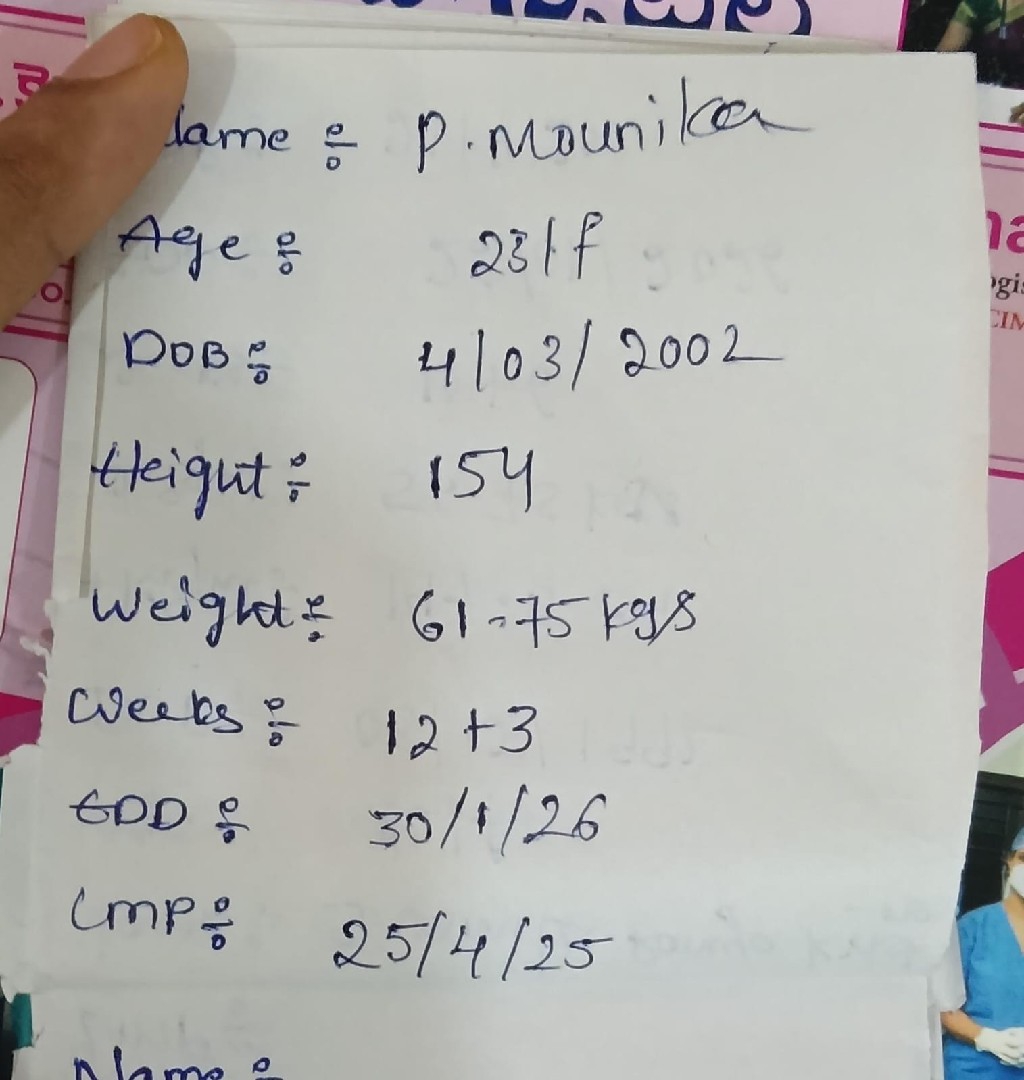 Name ÷ P. Mounika
Age ÷ 23/F
DOB ÷ 4/03/2002
Height ÷ 154
Weight ÷ 61.75 kgs
Weeks ÷ 12+3
EDD ÷ 30/1/26
LMP ÷ 25/4/25
Name ÷